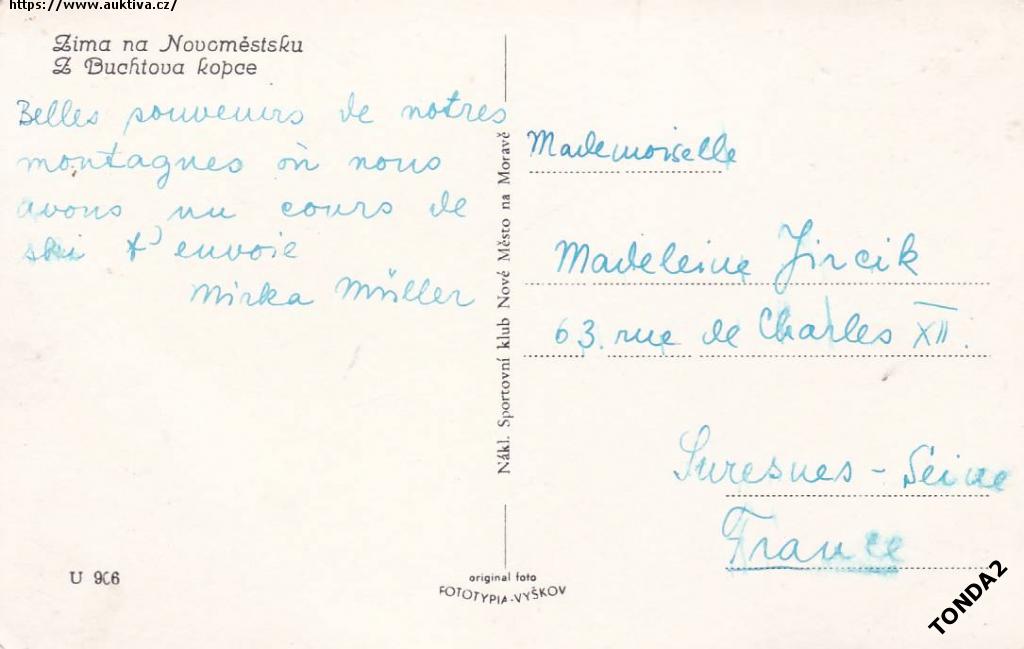 https://www.auktiva.cz/
Zima na Novoměstsku
Z Buchtova kopce
Belles souvenirs de notres
montagnes où nous
avons un cours de
ski t'envoie
Mirka Müller
U 906
Nákl. Sportovní klub Nové Město na Moravě
original foto
FOTOTYPIA-VYŠKOV
Mademoiselle
Madeleine Jircik
63. rue de Charles XII.
Suresnes - Seine
France
TONDA2